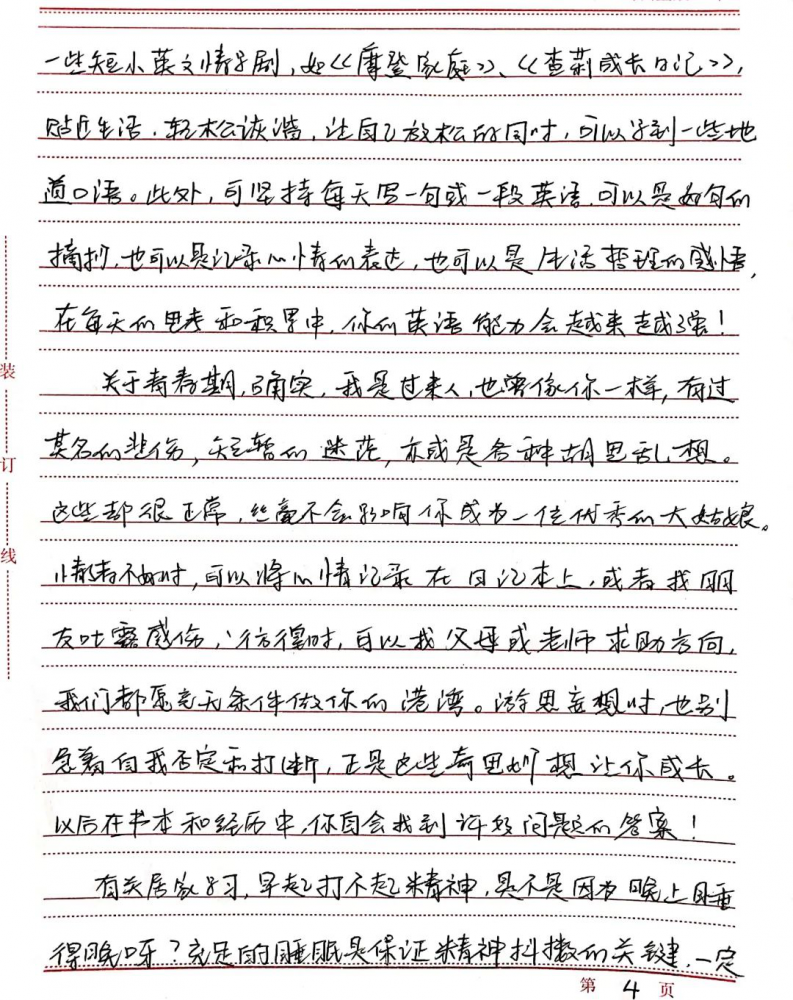 一些短小英文情景剧,如《摩登家庭》、《查莉成长日记》,
贴近生活,轻松诙谐,让自己放松的同时,可以学到一些地
道口语。此外,可坚持每天写一句或一段英语,可以是好句的
摘抄,也可以是记录心情的表达,也可以是生活哲理的感悟,
在每天的思考和积累中,你的英语能力会越来越强!
关于青春期,确实,我是过来人,也曾像你一样,有过
莫名的悲伤,短暂的迷茫,亦或是各种胡思乱想。
这些都很正常,丝毫不会影响你成为一位优秀的大姑娘。
情绪不好时,可以将心情记录在日记本上,或者找朋
友吐露感伤,彷徨时,可以找父母或老师求助方向,
我们都愿意无条件做你的港湾。游思妄想时,也别
急着自我否定和打断,正是这些奇思妙想让你成长。
以后在书本和经历中,你自会找到许多问题的答案!
有关居家学习,早起打不起精神,是不是因为晚上睡
得晚呀?充足的睡眠是保证精神抖擞的关键,一定
装
订
线
第 4 页